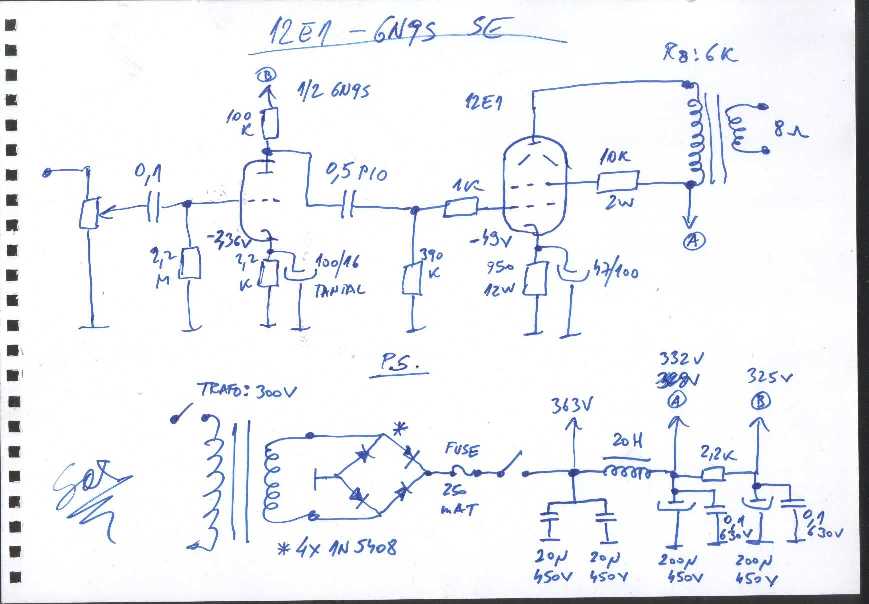 12E1 - 6N9S SE
B
1/2 6N9S
100
K
12E1
Ra: 6K
8Ω
0,1
0,5 PIO
1K
10K
2W
A
2,2
M
2,2
K
100/16
TANTAL
390
K
-49V
950
12W
47/100
P.S.
TRAFO: 300V
*
FUSE
250
mAT
* 4x 1N5408
363V
20H
332V
A
2,2K
325V
B
20µ
450V
20µ
450V
200µ
450V
0,1
630V
200µ
450V
0,1
630V